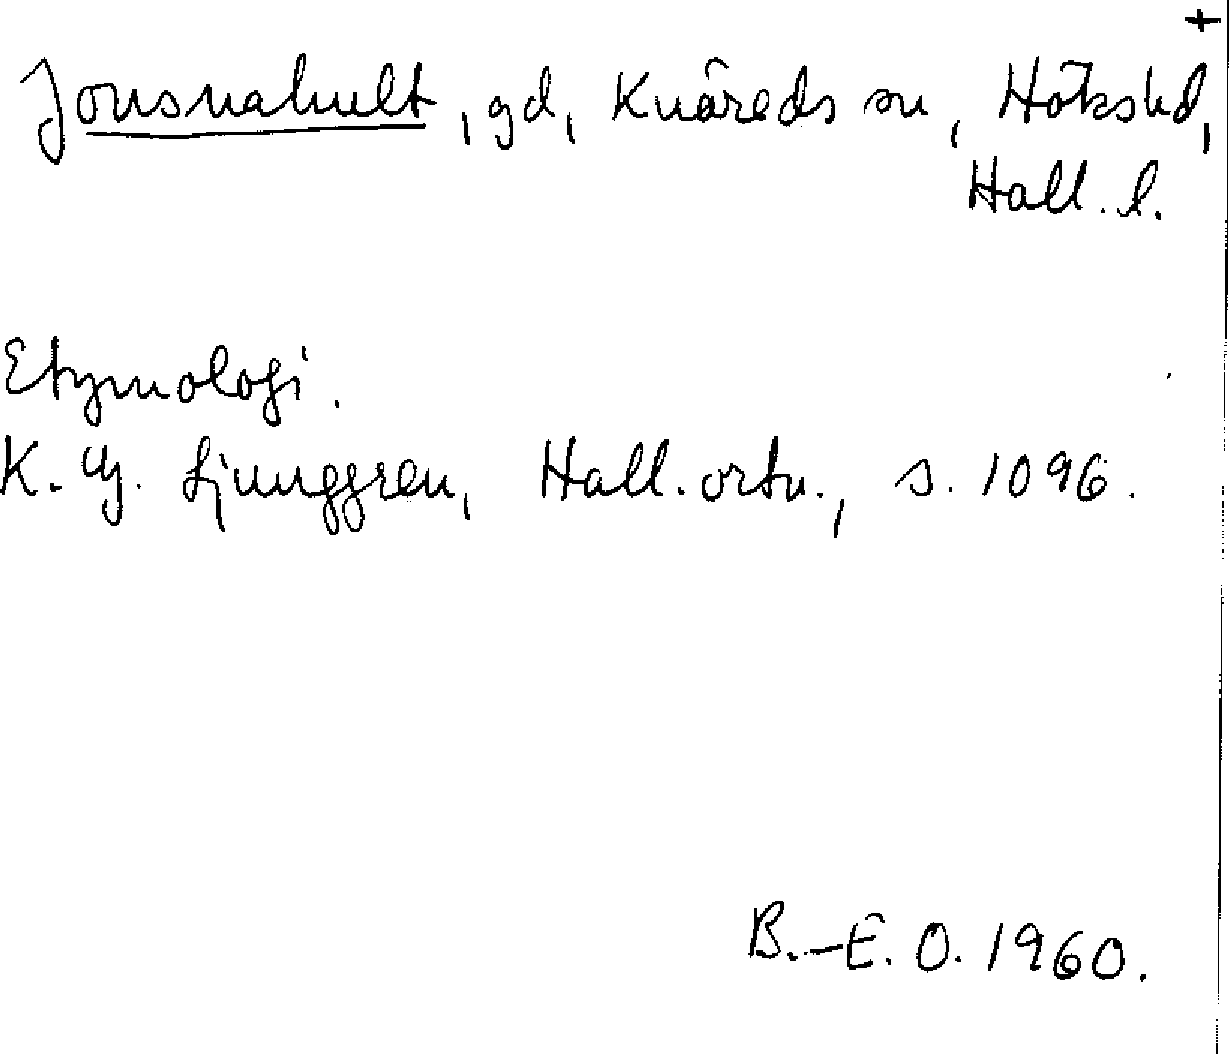 +
Jonsnahult, gd, Knäreds sn, Höks hd,
Hall. l.
Etymologi.
K. G. Ljunggren, Hall. ortn., s. 1096.
B.-E. O. 1960.